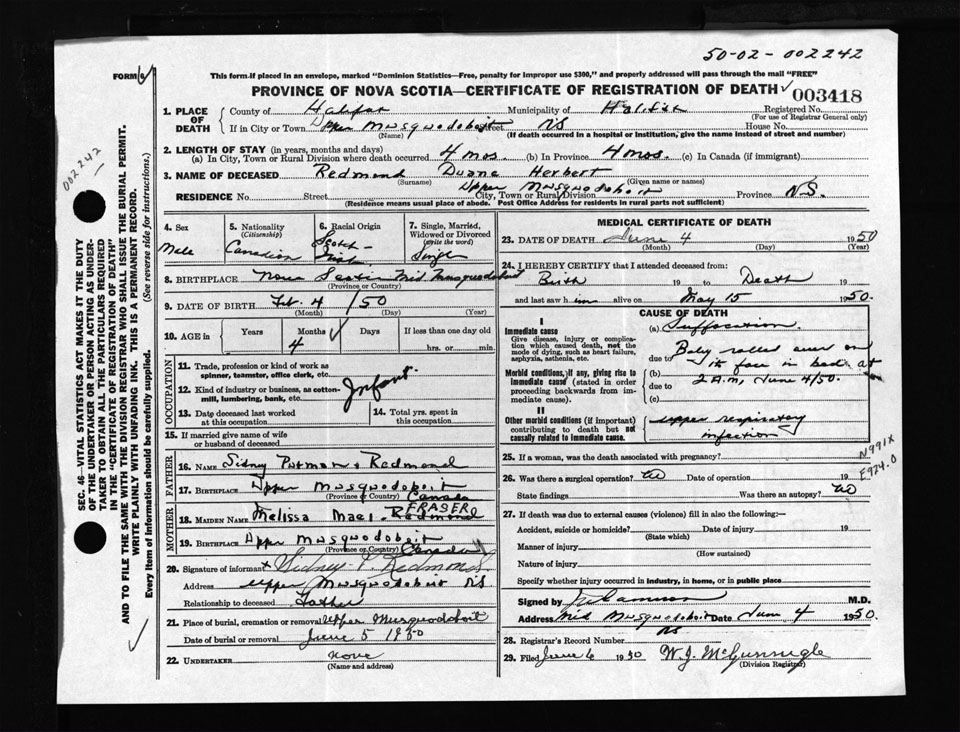 50-02-002242
FORM 6
This form if placed in an envelope, marked "Dominion Statistics—Free, penalty for improper use $300," and properly addressed will pass through the mail "FREE"
PROVINCE OF NOVA SCOTIA—CERTIFICATE OF REGISTRATION OF DEATH
003418
002242
SEC. 46—VITAL STATISTICS ACT MAKES IT THE DUTY
OF THE UNDERTAKER OR PERSON ACTING AS UNDER-
TAKER TO OBTAIN ALL THE PARTICULARS REQUIRED
IN THE "CERTIFICATE OF REGISTRATION OF DEATH"
AND TO FILE THE SAME WITH THE DIVISION REGISTRAR WHO SHALL ISSUE THE BURIAL PERMIT.
WRITE PLAINLY WITH UNFADING INK. THIS IS A PERMANENT RECORD.
Every item of Information should be carefully supplied. (See reverse side for instructions.)
1. PLACE OF DEATH
County of Halifax Municipality of Halifax Registered No.
(For use of Registrar General only)
If in City or Town Upper Musquodoboit Street NS House No.
(Name) (If death occurred in a hospital or institution, give the name instead of street and number)
2. LENGTH OF STAY (in years, months and days)
(a) In City, Town or Rural Division where death occurred 4 mos. (b) In Province 4 mos. (c) In Canada (if immigrant)
3. NAME OF DECEASED Redmond Duane Herbert
(Surname) (Given name or names)
RESIDENCE No. Street City, Town or Rural Division Upper Musquodoboit Province N.S.
(Residence means usual place of abode. Post Office Address for residents in rural parts not sufficient)
4. Sex
Male
5. Nationality
(Citizenship)
Canadian
6. Racial Origin
Scotch-
Irish
7. Single, Married,
Widowed or Divorced
(write the word)
Single
8. BIRTHPLACE Nova Scotia Mid Musquodoboit
(Province or Country)
9. DATE OF BIRTH Feb. 4 /50
(Month) (Day) (Year)
10. AGE in
Years Months Days If less than one day old
4 hrs. or min.
OCCUPATION
11. Trade, profession or kind of work as
spinner, teamster, office clerk, etc.
12. Kind of industry or business, as cotton-
mill, lumbering, bank, etc.
Infant
13. Date deceased last worked
at this occupation
14. Total yrs. spent in
this occupation
15. If married give name of wife
or husband of deceased
FATHER
16. Name Sidney Putman Redmond
17. Birthplace Upper Musquodoboit
(Province or Country) Canada
MOTHER
FRASER
18. Maiden Name Melissa Mael Redmond
19. Birthplace Upper Musquodoboit
(Province or Country) Canada
20. Signature of informant x Sidney P. Redmond
Address Upper Musquodoboit NS
Relationship to deceased Father
21. Place of burial, cremation or removal Upper Musquodoboit
Date of burial or removal June 5 1950
22. UNDERTAKER none
(Name and address)
MEDICAL CERTIFICATE OF DEATH
23. DATE OF DEATH June 4 1950
(Month) (Day) (Year)
24. I HEREBY CERTIFY that I attended deceased from:
Birth 19 to Death 19
and last saw him alive on May 15 1950.
CAUSE OF DEATH
I
Immediate cause
Give disease, injury or complica-
tion which caused death, not the
mode of dying, such as heart failure,
asphyxia, asthenia, etc.
(a) Suffocation.
due to Baby rolled over on
(b) its face in bed at
due to 2 A.M, June 4/50.
(c)
Morbid conditions, if any, giving rise to
immediate cause (stated in order
proceeding backwards from im-
mediate cause).
II
Other morbid conditions (if important)
contributing to death but not
causally related to immediate cause.
upper respiratory
infection
N991X
E924.0
25. If a woman, was the death associated with pregnancy?
26. Was there a surgical operation? No Date of operation 19
State findings Was there an autopsy? No
27. If death was due to external causes (violence) fill in also the following:—
Accident, suicide or homicide? Date of injury 19
(State which)
Manner of injury
(How sustained)
Nature of injury
Specify whether injury occurred in industry, in home, or in public place
Signed by M.D.
Address Mid Musquodoboit Date June 4 1950
NS
28. Registrar's Record Number
29. Filed June 6 1950 W.J. McGunnigle
(Division Registrar)